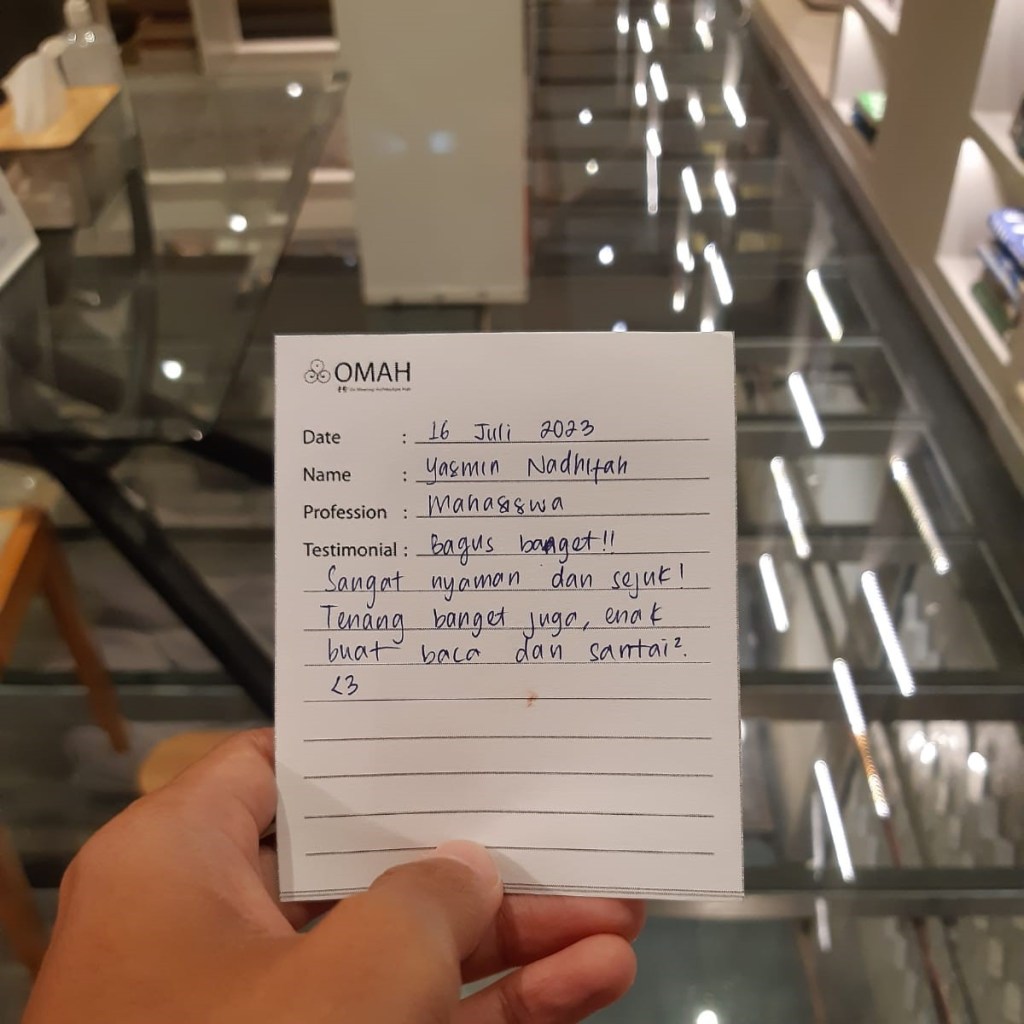 OMAH
Date : 16 Juli 2023
Name : Yasmin Nadhifah
Profession : Mahasiswa
Testimonial : Bagus banget!!
Sangat nyaman dan sejuk!
Tenang banget juga, enak
buat baca dan santai².
<3